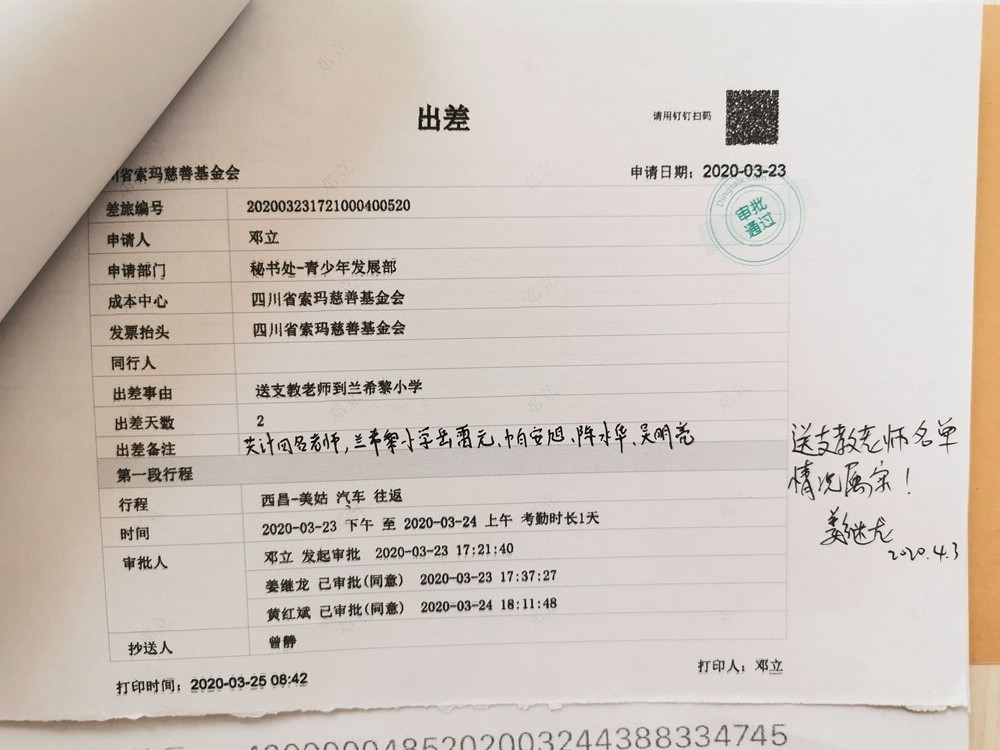 出差
请用钉钉扫码
川省索玛慈善基金会
申请日期：2020-03-23
审批
通过
差旅编号 202003231721000400520
申请人 邓立
申请部门 秘书处-青少年发展部
成本中心 四川省索玛慈善基金会
发票抬头 四川省索玛慈善基金会
同行人
出差事由 送支教老师到兰希黎小学
出差天数 2
出差备注 共计四名老师，兰希黎小学岳雷元、帕安旭、陈水华、吴明亮
第一段行程
行程 西昌-美姑 汽车 往返
时间 2020-03-23 下午 至 2020-03-24 上午 考勤时长1天
审批人 邓立 发起审批 2020-03-23 17:21:40
姜继龙 已审批(同意) 2020-03-23 17:37:27
黄红斌 已审批(同意) 2020-03-24 18:11:48
抄送人 曾静
送支教老师名单
情况属实！
姜继龙
2020.4.3
打印时间：2020-03-25 08:42
打印人：邓立